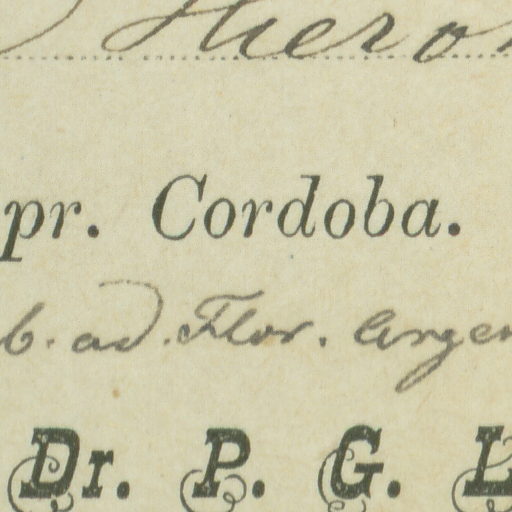 Hieron
pr. Cordoba.
b. ad. Flor. Argen
Dr. P. G. L